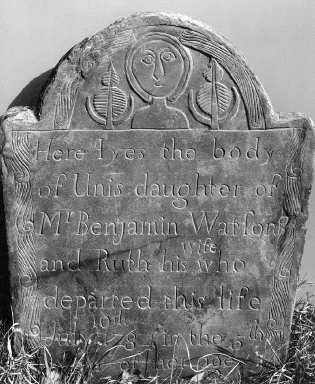 Here lyes the body
of Unis daughter of
Mr Benjamin Watson
wife
and Ruth his who
departed this life
10th
July in the 6th
of her